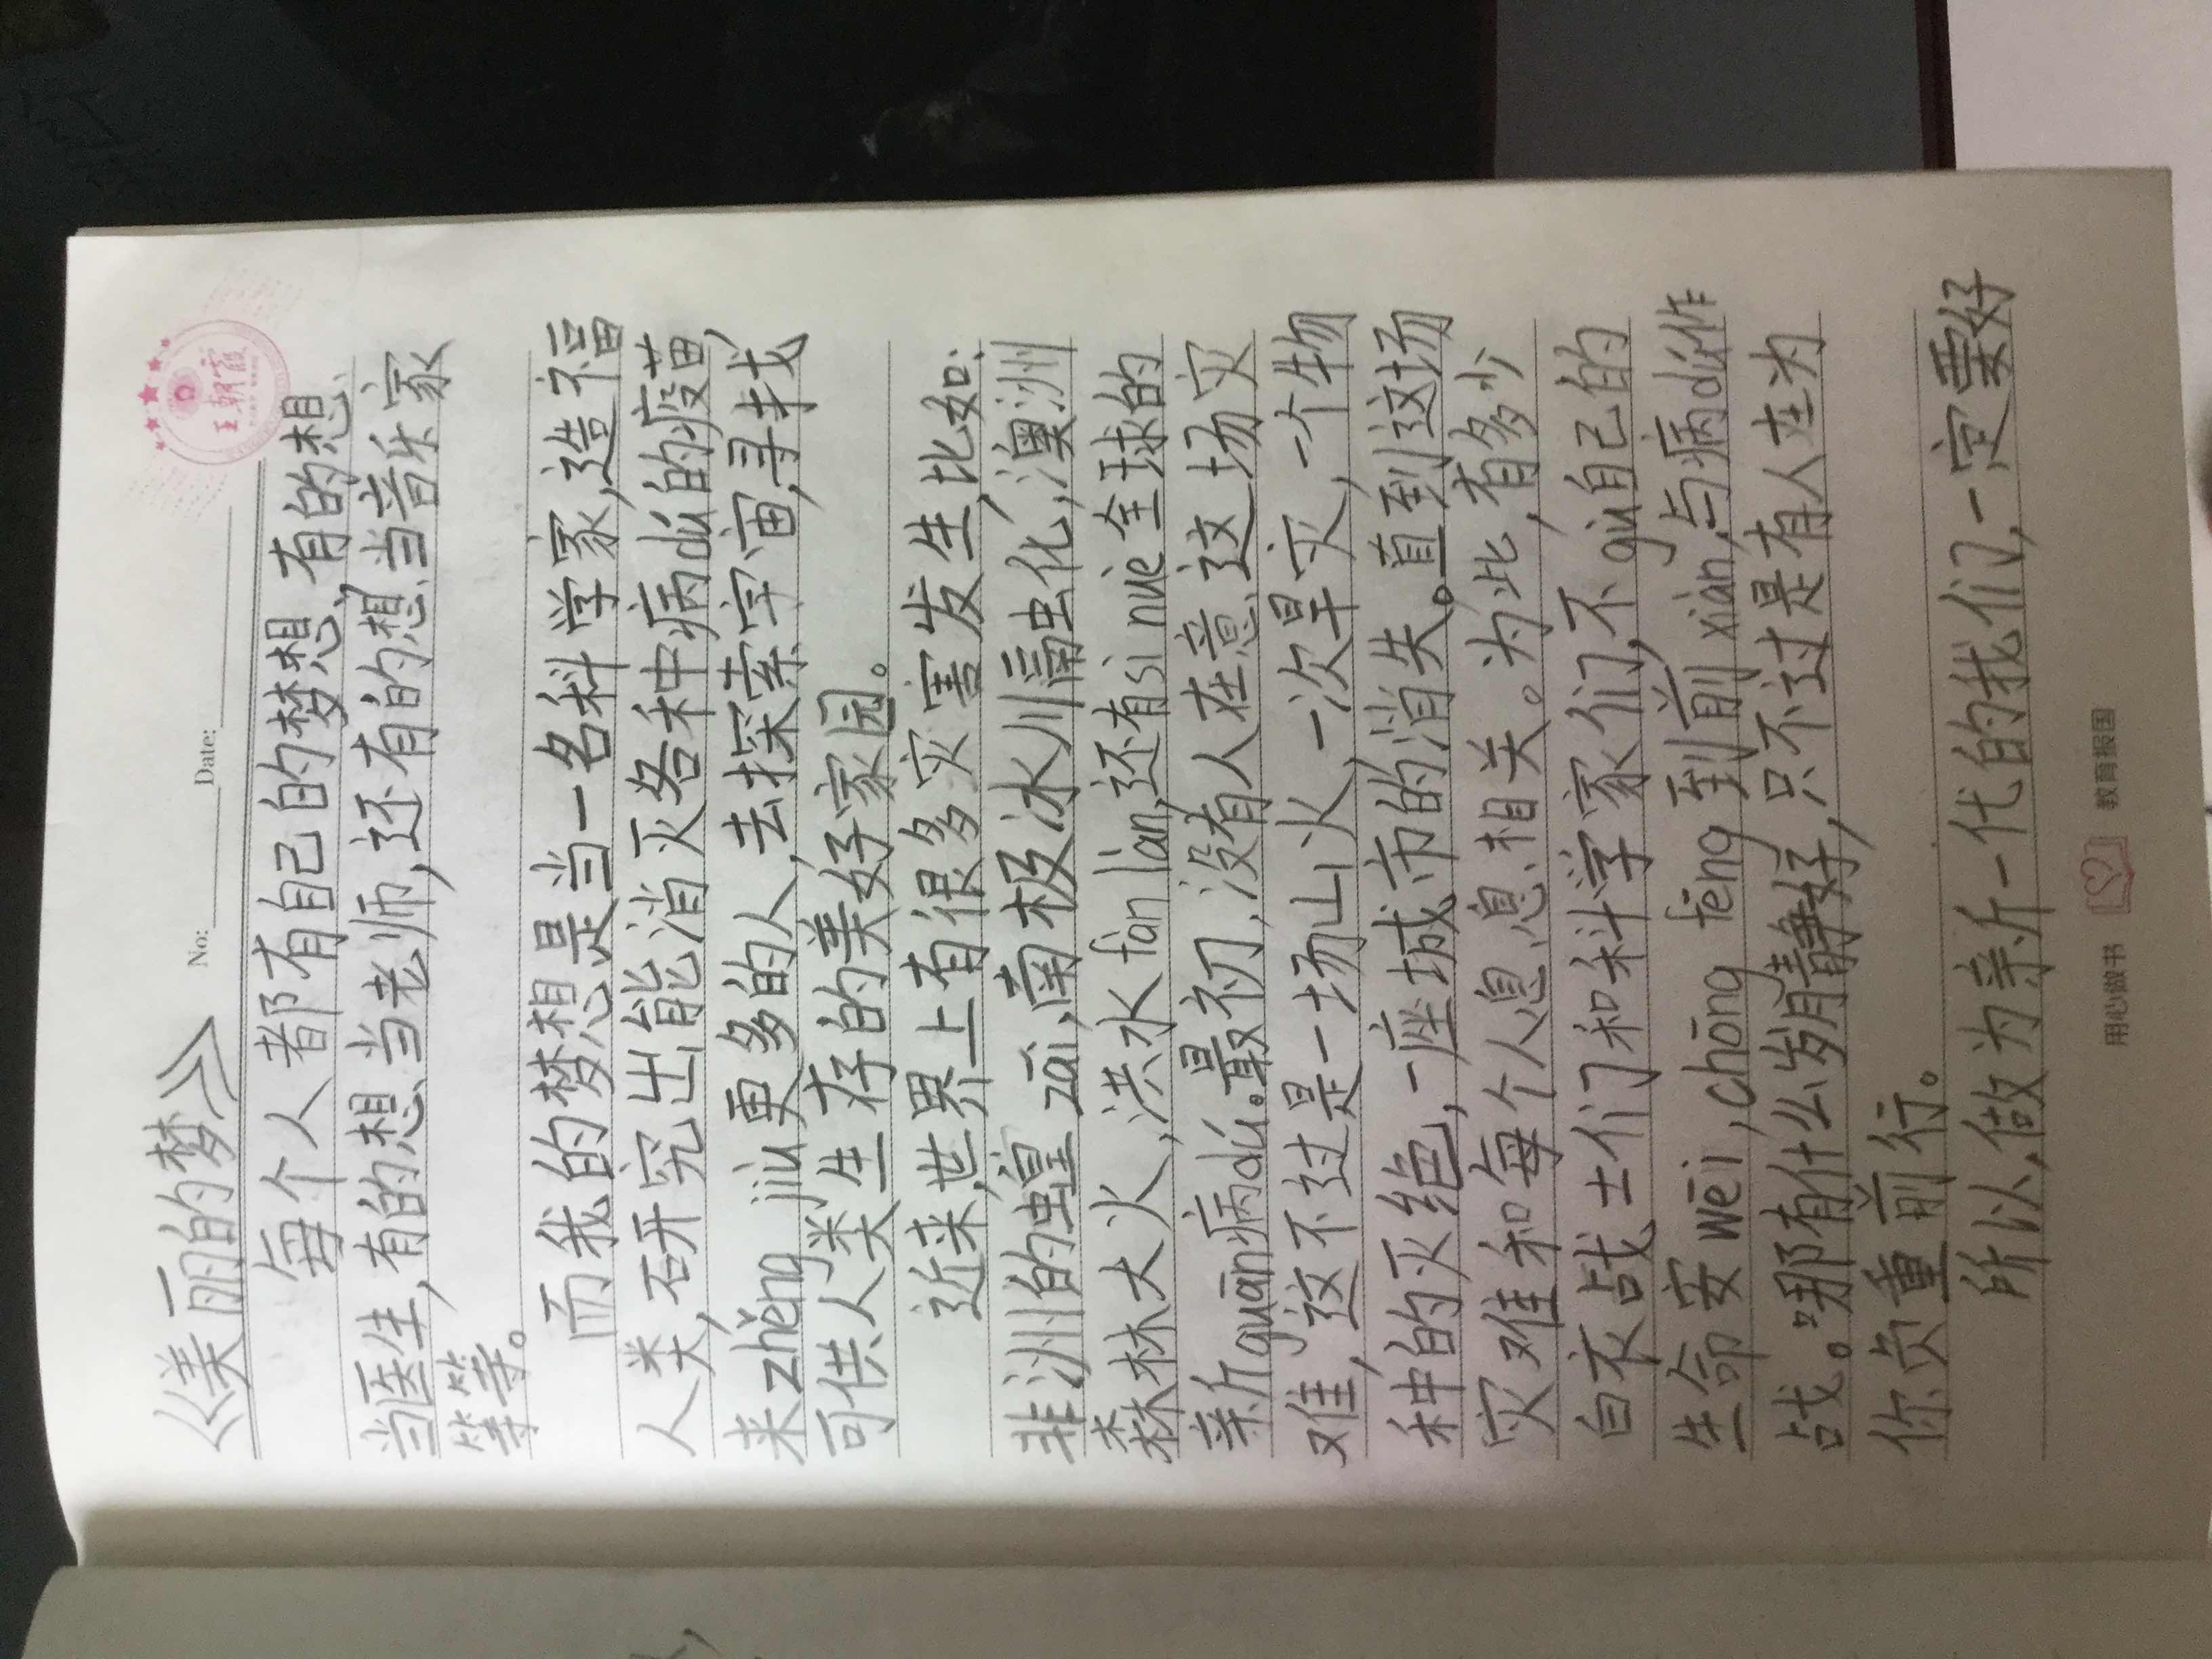 《美丽的梦》
No: Date:
王朝霞
每个人都有自己的梦想,有的想
当医生,有的想当老师,还有的想当音乐家
等等。
而我的梦想是当一名科学家,造福
人类,研究出能消灭各种病dú的疫苗,
来zhěng jiù更多的人,去探索宇宙,寻找
可供人类生存的美好家园。
近来,世界上有很多灾害发生,比如:
非洲的蝗zāi,南极冰川融化,澳洲
森林大火,洪水fàn làn,还有sì nuè全球的
新guān病dú。最初,没有人在意这场灾
难,这不过是一场山火,一次旱灾,一个生物
种的灭绝,一座城市的消失。直到这场
灾难和每个人息息相关。为此,有多少
白衣战士们和科学家们,不gù自己的
生命安wēi,chōng fēng到前xiàn,与病dú作
战。"哪有什么岁月静好,只不过是有人在为
你负重前行。
所以,做为新一代的我们,一定要好
用心做书 教育报国